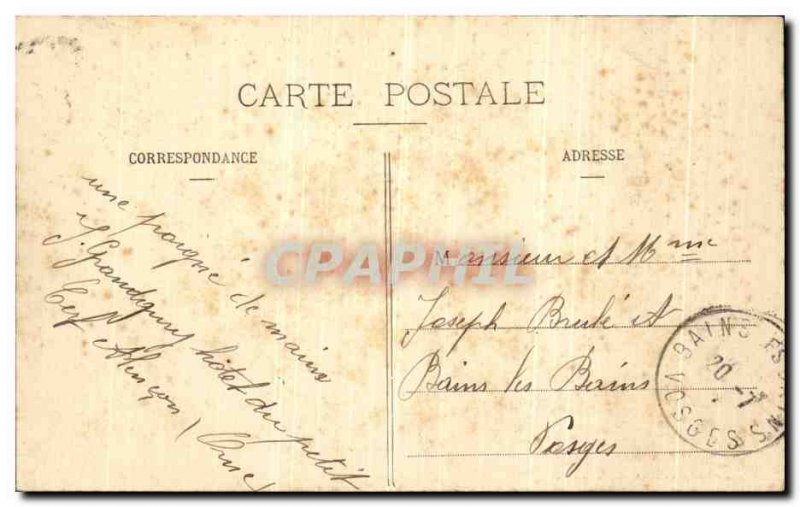 CARTE POSTALE
CORRESPONDANCE
une poigné de mains
hôtel du petit
Cerf Alençon (Orne)
ADRESSE
Monsieur et Mme
Joseph
Bains les Bains
Vosges
BAINS LES BAINS
20 -7
VOSGES
CPAPHIL